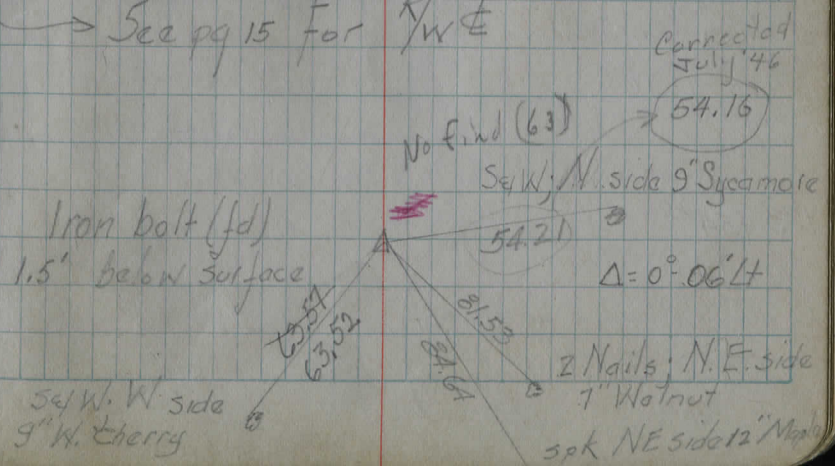 See pg 15 For R/W ℄
Corrected
July '46
54.16
No find (63)
S&W; N. side 9" Sycamore
54.21
Iron bolt (fd)
1.5' below Surface
Δ = 0°-06' Lt
63.57
63.52
81.53
84.64
2 Nails; N.E. side
7" Walnut
S&W. W side
9" W. Cherry
spk NE side 12" Maple